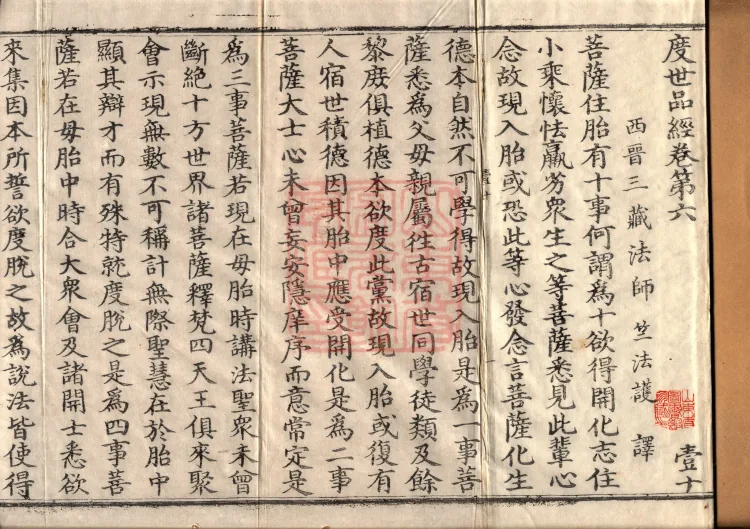 度世品經卷第六 壹十
西晉三藏法師竺法護 譯
菩薩住胎有十事何謂為十欲得開化志住
小乘懷怯羸劣眾生之等菩薩悉見此輩心
念故現入胎或恐此等心發念言菩薩化生
德本自然不可學得故現入胎是為一事菩
薩悉為父母親屬徃古宿世同學徒類及餘
黎庶俱植德本欲度此黨故現入胎或復有
人宿世積德因其胎中應受開化是為二事
菩薩大士心未曾妄安隱庠序而意常定是
為三事菩薩若現在母胎時講法聖眾未曾
斷絕十方世界諸菩薩釋梵四天王俱來聚
會示現無數不可稱計無際聖慧在於胎中
顯其辯才而有殊特就度脫之是為四事菩
薩若在母胎中時合大眾會及諸開士悉欲
來集因本所誓欲度脫之故為說法皆使得